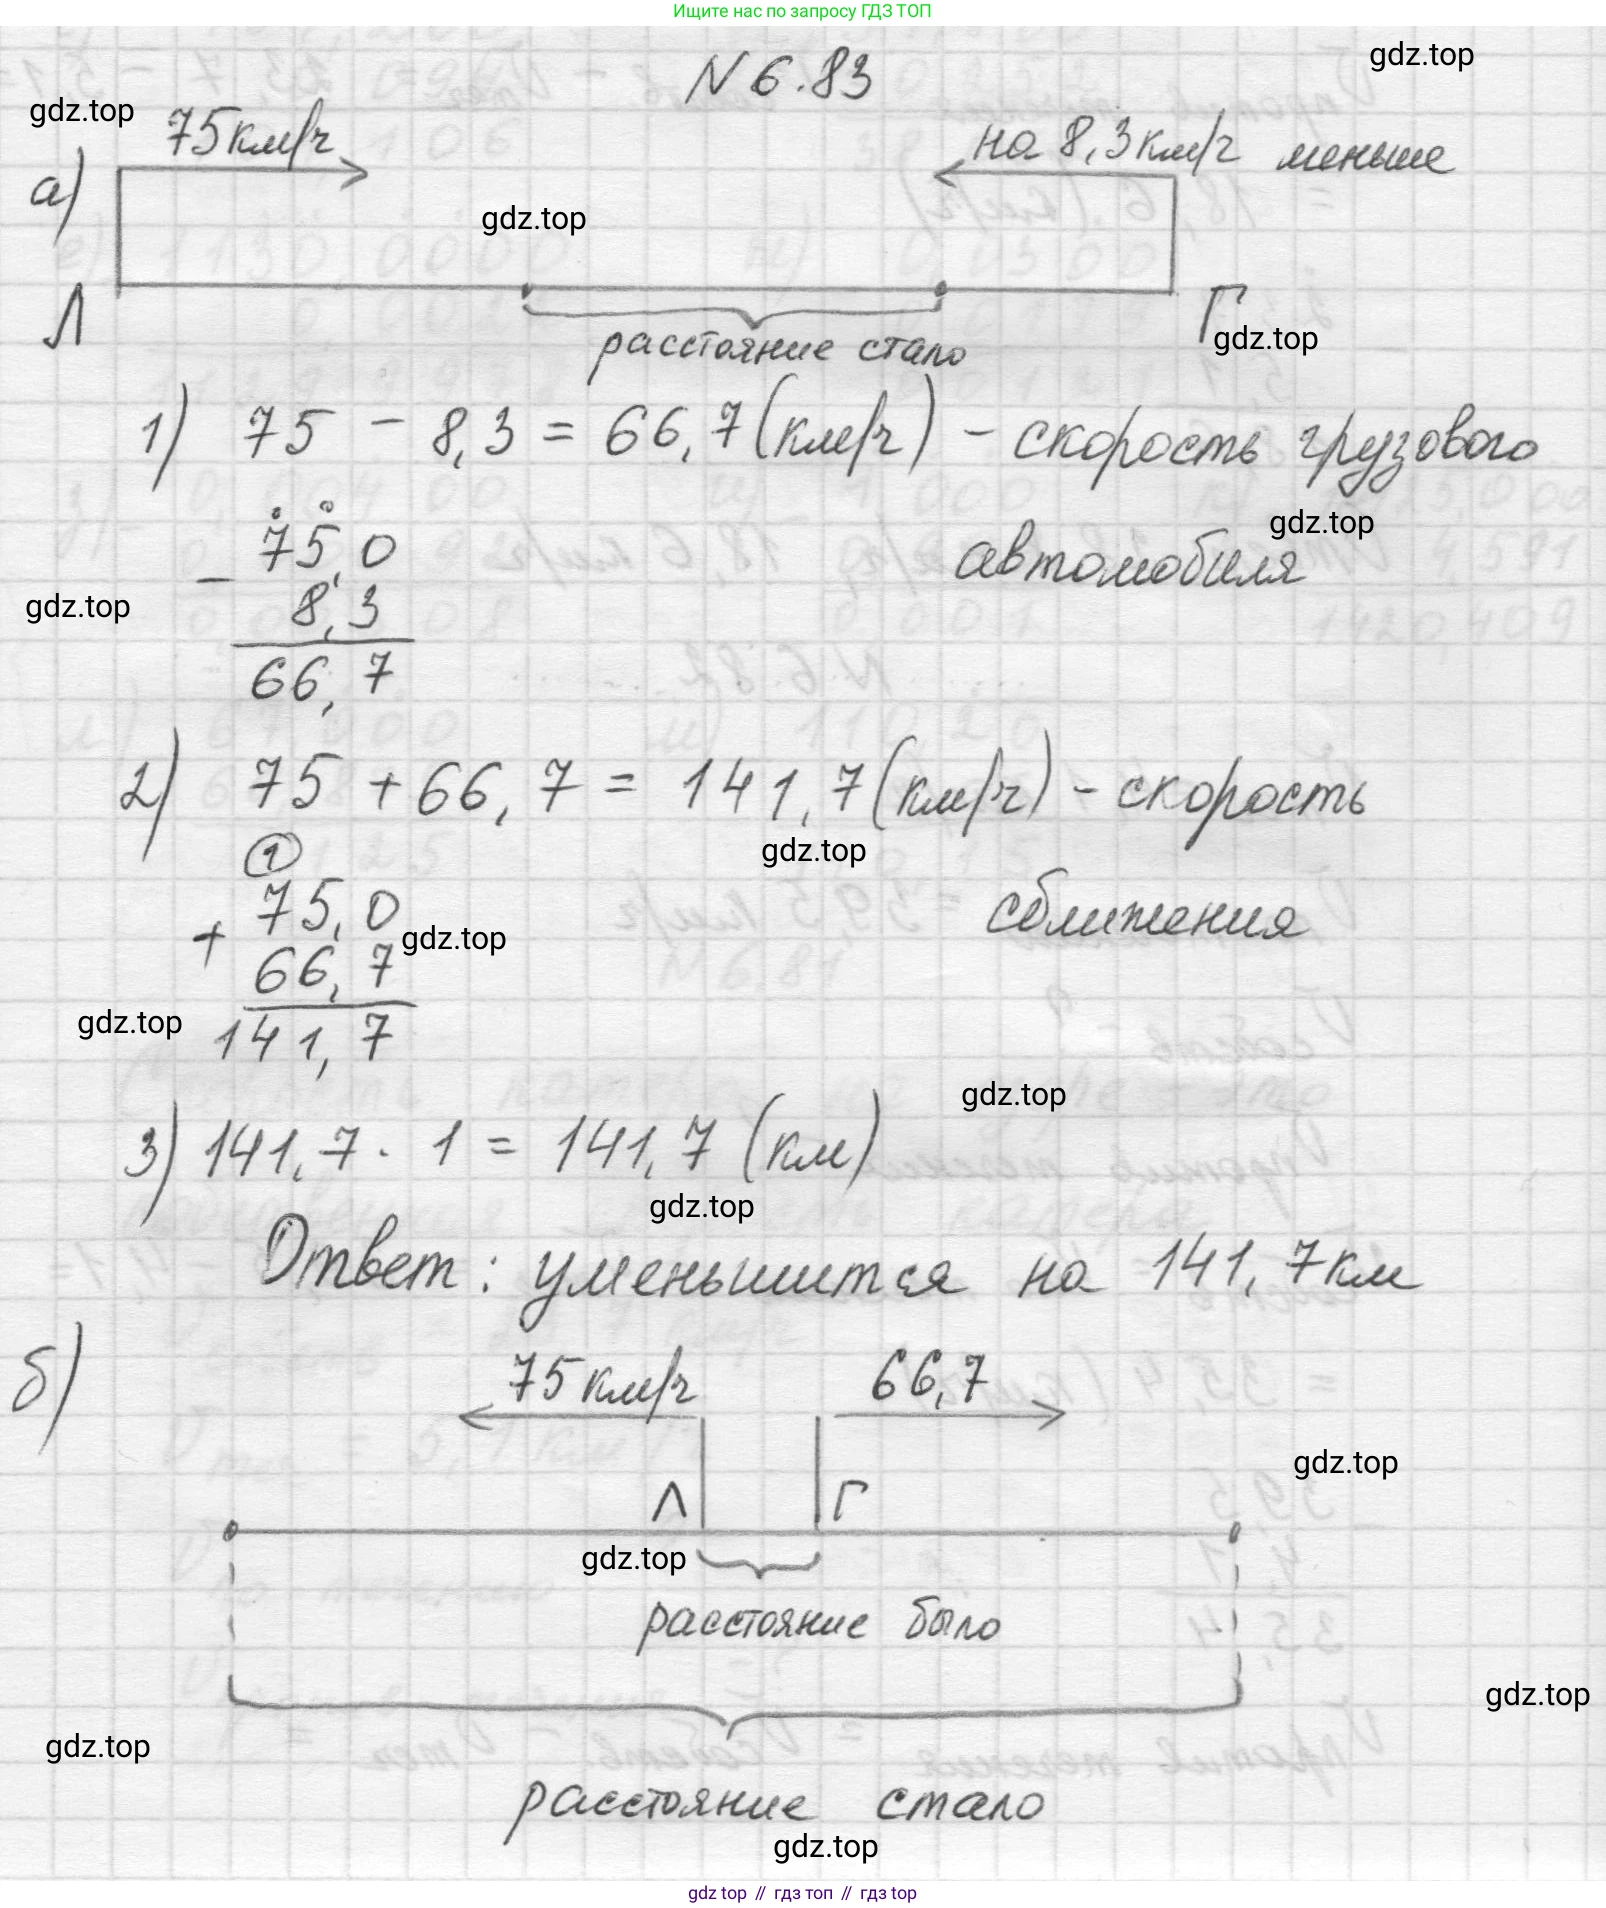 Ищите нас по запросу ГДЗ ТОП
N 6.83
gdz.top
gdz.top
75км/ч
на 8,3км/ч меньше
а)
gdz.top
Л
Г
gdz.top
расстояние стало
1) 75 - 8,3 = 66,7 (км/ч) - скорость грузового
gdz.top
автомобиля
75,0
-
gdz.top
8,3
66,7
2) 75 + 66,7 = 141,7 (км/ч) - скорость
gdz.top
1
сближения
75,0
+
gdz.top
66,7
gdz.top
141,7
gdz.top
3) 141,7 · 1 = 141,7 (км)
gdz.top
Ответ: уменьшится на 141,7км
б)
75 км/ч
66,7
gdz.top
Л
Г
gdz.top
расстояние было
gdz.top
gdz.top
расстояние стало
gdz.top
gdz top // гдз топ // гдз top